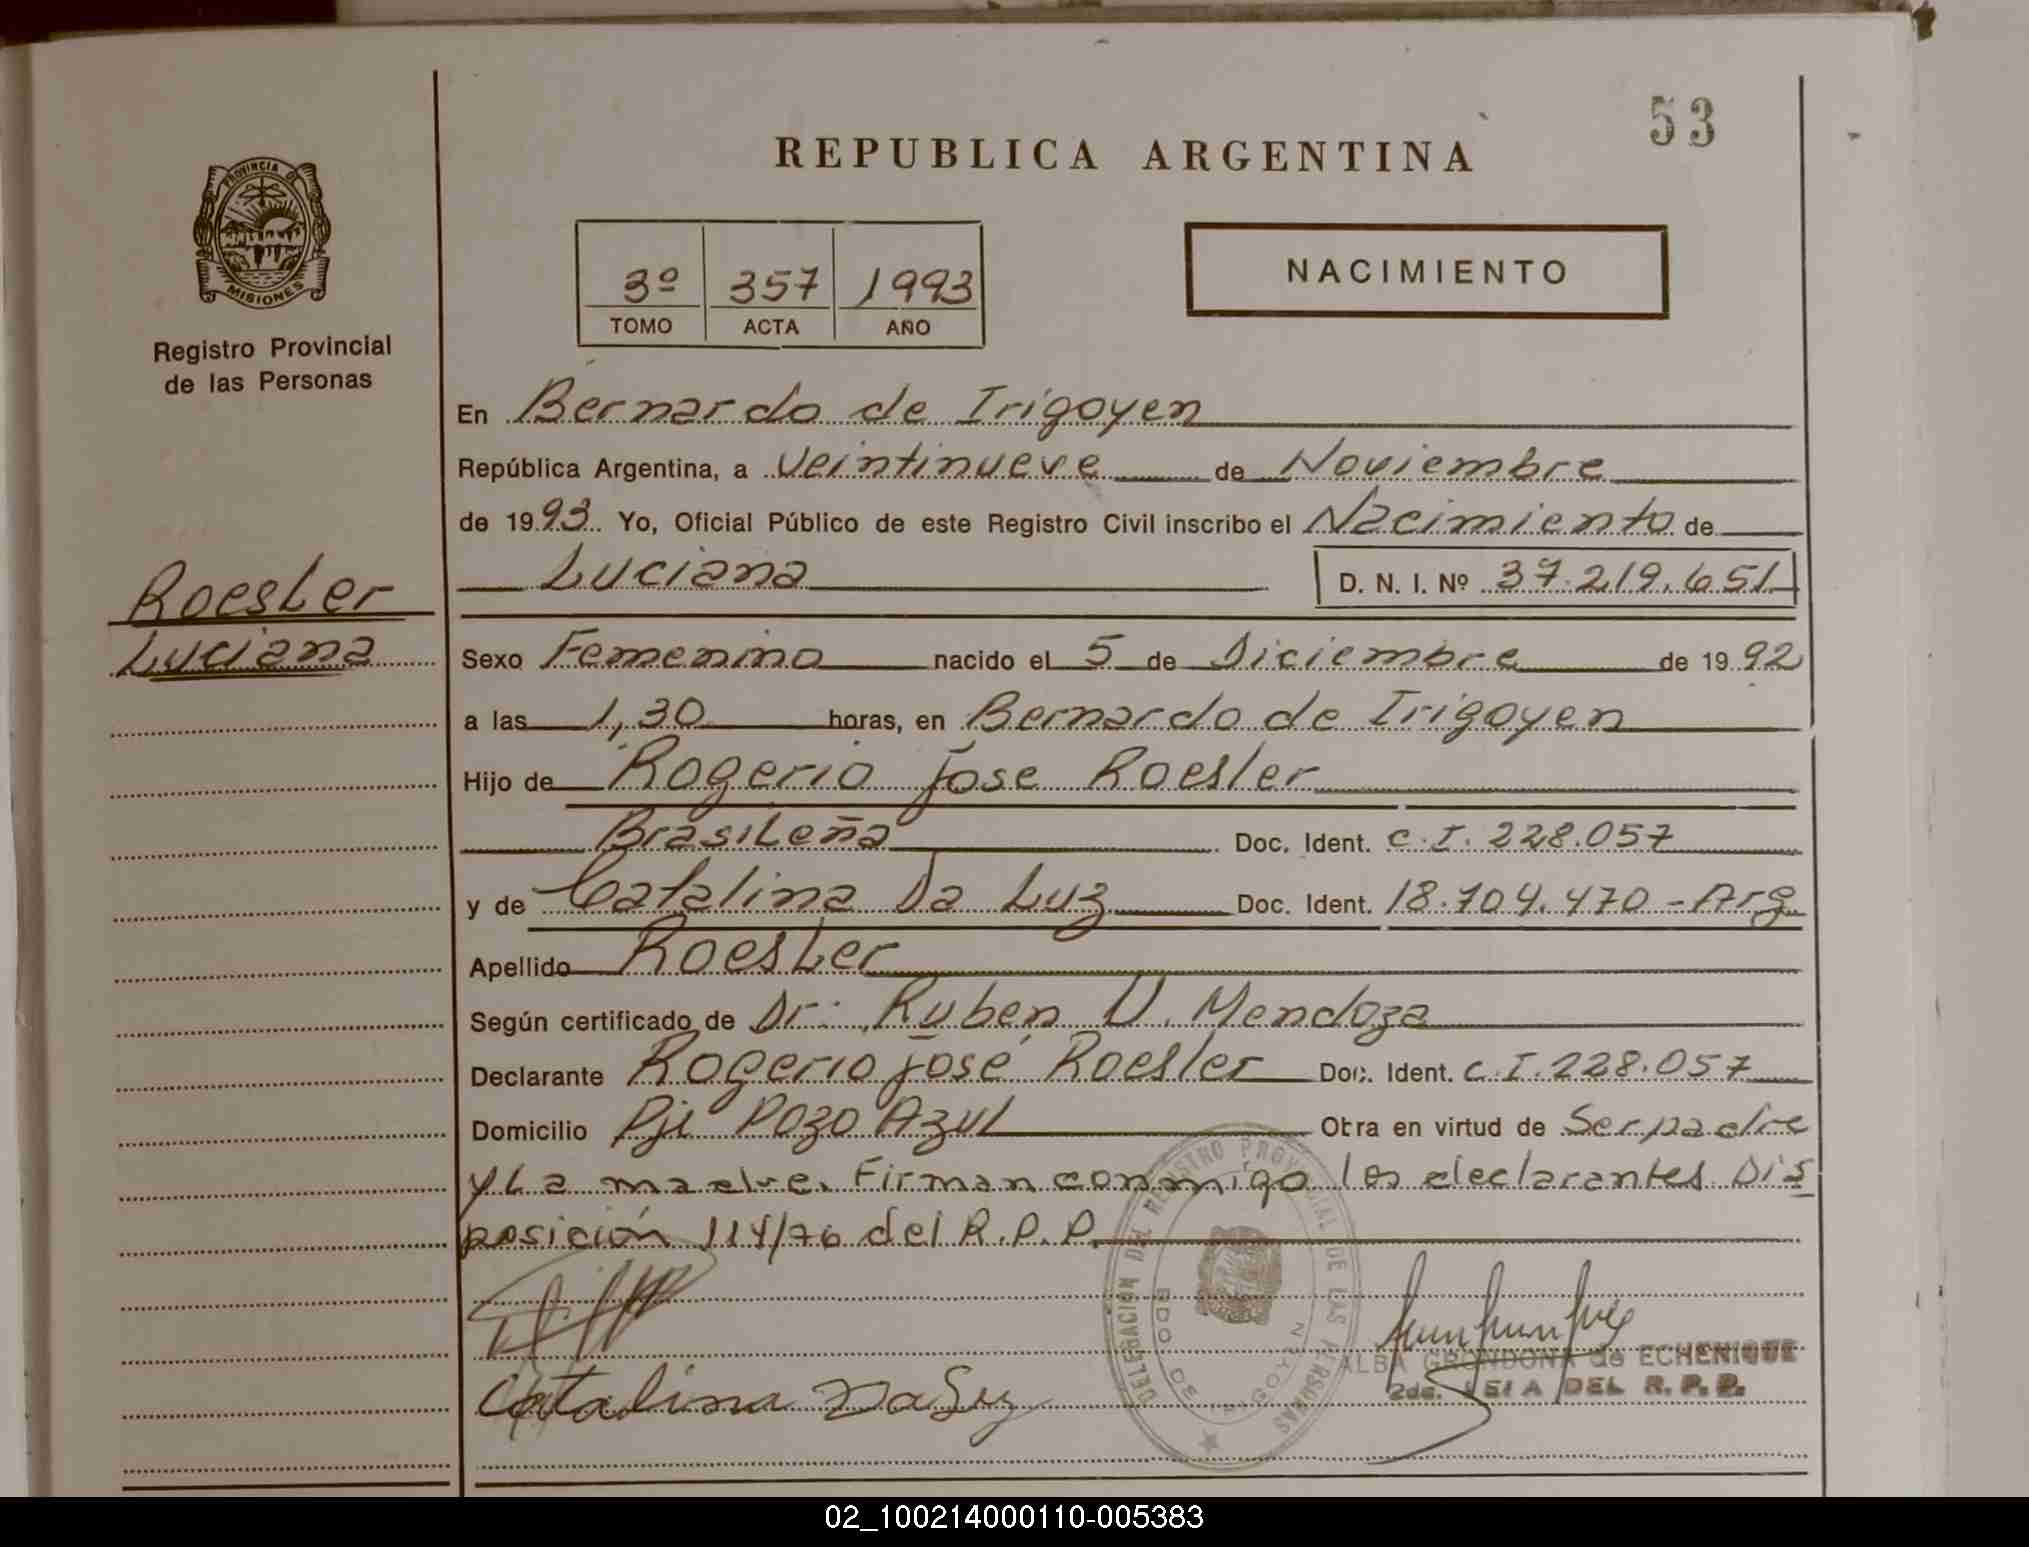 53
REPUBLICA ARGENTINA
PROVINCIA DE
MISIONES
Registro Provincial
de las Personas
3º 357 1993
TOMO ACTA AÑO
NACIMIENTO
En Bernardo de Irigoyen
República Argentina, a Veintinueve de Noviembre
de 1993. Yo, Oficial Público de este Registro Civil inscribo el Nacimiento de
Luciana D. N. I. Nº 37.219.651
Roesler
Luciana
Sexo Femenino nacido el 5 de Diciembre de 1992
a las 1,30 horas, en Bernardo de Irigoyen
Hijo de Rogerio Jose Roesler
Brasileña Doc. Ident. C.I. 228.057
y de Catalina Da Luz Doc. Ident. 18.704.470 - Arg
Apellido Roesler
Según certificado de Dr. Ruben D. Mendoza
Declarante Rogerio José Roesler Doc. Ident. C.I. 228.057
Domicilio Pje Pozo Azul Obra en virtud de Ser padre
y La madre. Firman conmigo los declarantes Dis
posición 114/76 del R.P.P.
DELEGACION DEL REGISTRO PROVINCIAL DE LAS PERSONAS
BDO DE IRIGOYEN
Catalina Da Luz
ALBA GRONDONA de ECHENIQUE
2da. DEL R.P.P.
02_100214000110-005383